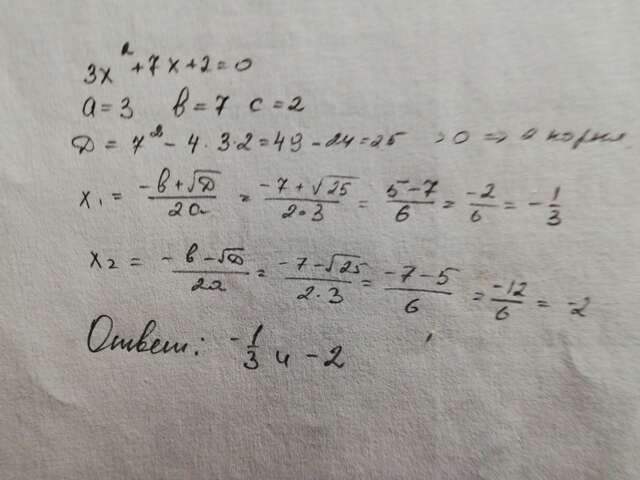 3x² + 7x + 2 = 0
a = 3 в = 7 c = 2
Д = 7² - 4 · 3 · 2 = 49 - 24 = 25 > 0 => 2 корня
x₁ = (-в + √Д)/2a = (-7 + √25)/2·3 = (5 - 7)/6 = -2/6 = -1/3
x₂ = (-в - √Д)/2a = (-7 - √25)/2·3 = (-7 - 5)/6 = -12/6 = -2
Ответ: -1/3 и -2